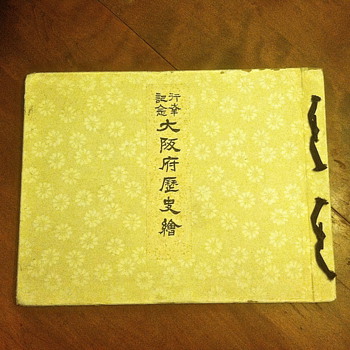 行幸
記念
大阪府歴史繪